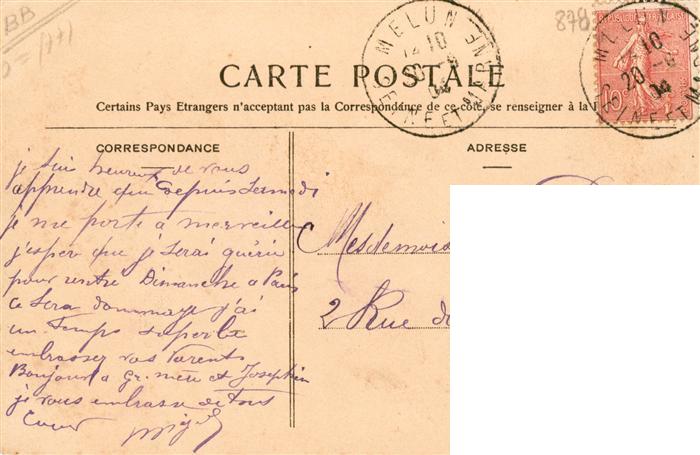 BB
878
MELUN
12 10
20 -8
04
SEINE ET MARNE
REPUBLIQUE FRANÇAISE
10
MELUN
10
20 -8
04
SEINE ET MARNE
CARTE POSTALE
Certains Pays Etrangers n'acceptant pas la Correspondance de ce côté, se renseigner à la
CORRESPONDANCE
ADRESSE
je suis heureux de vous
apprendre que depuis Samedi
je me porte à merveille
j'espère que je serai guérie
pour rentré Dimanche a Paris
ce sera dommage j'ai
un temps superbe
embrasser vos Parents
Bonjour a Gr. mère et Josephin
je vous embrasse de tout
Coeur
Mesdemois
2 Rue de